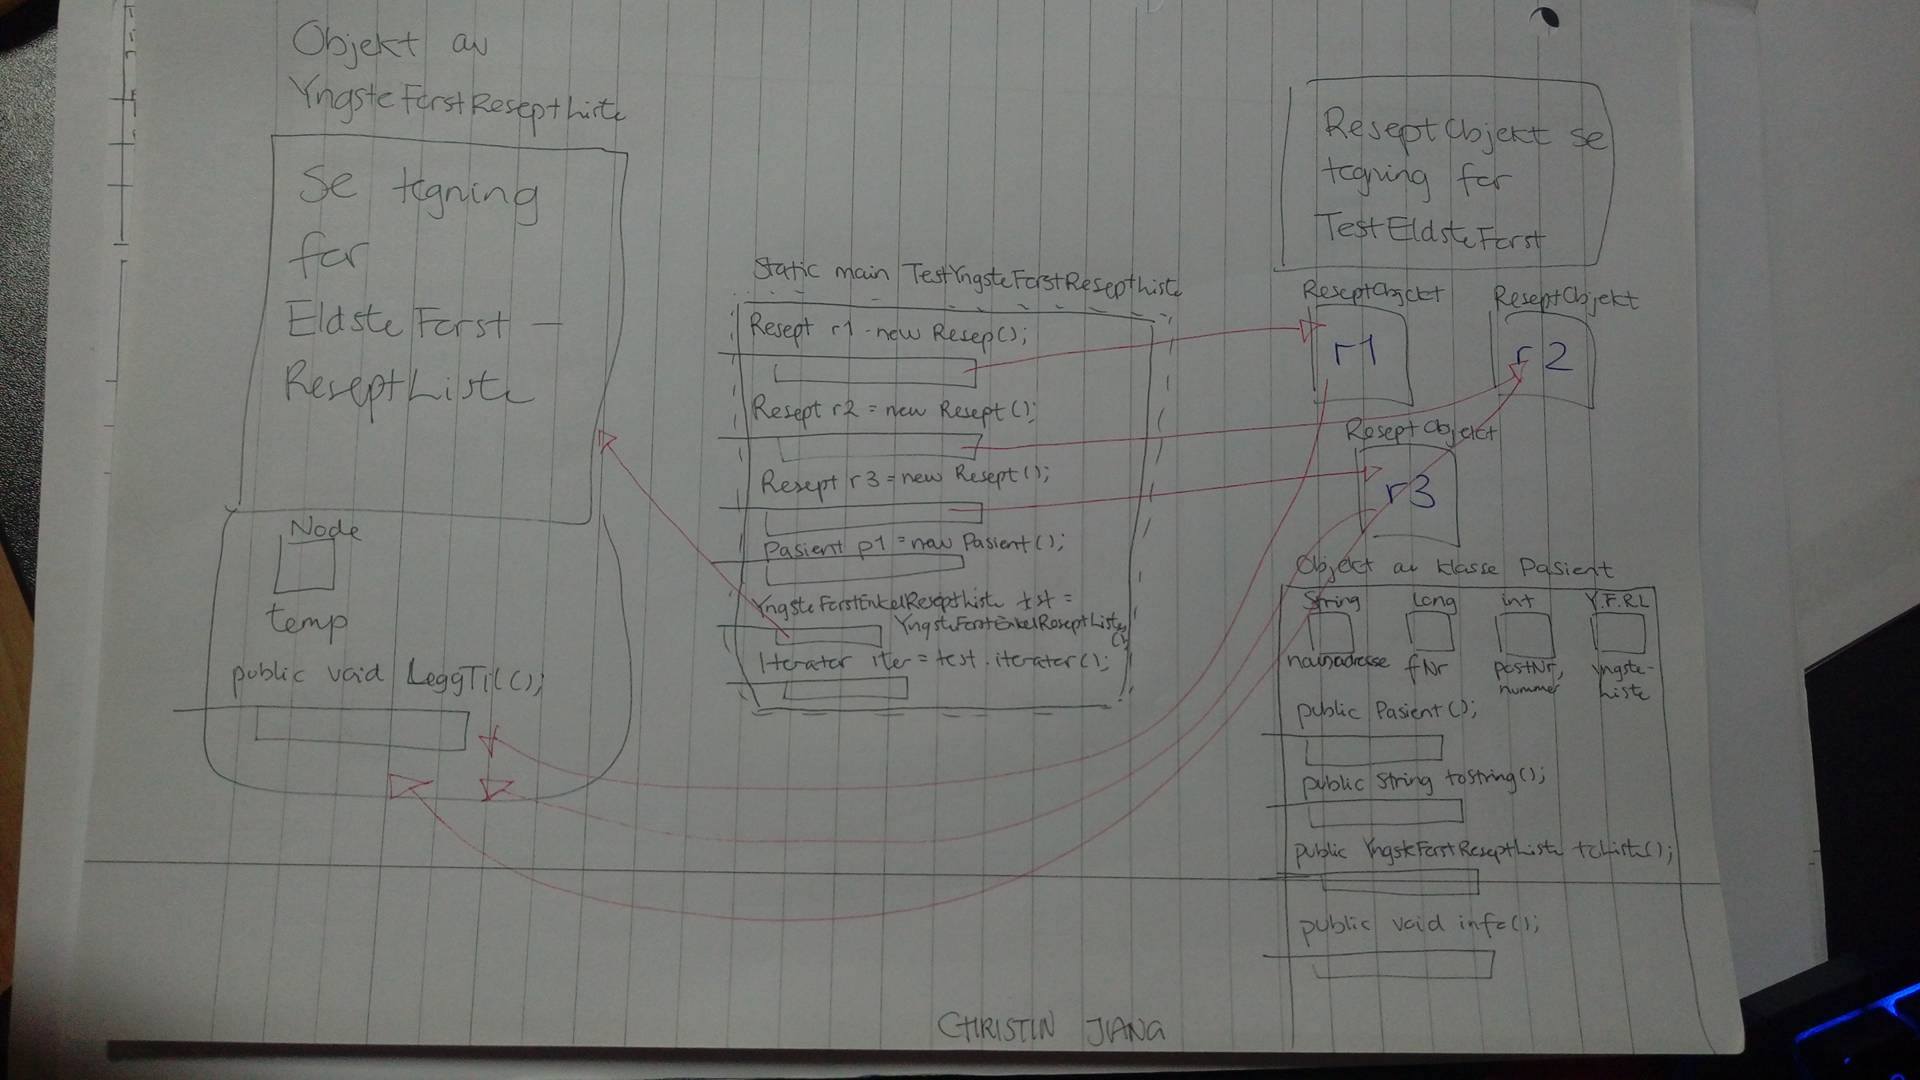 Objekt av
YngsteFørstReseptListe
Se tegning
for
EldsteFørst –
ReseptListe
Node
temp
public void LeggTil();
Static main TestYngsteFørstReseptListe
Resept r1 - new Resep();
Resept r2 = new Resept();
Resept r3 = new Resept();
Pasient p1 = new Pasient();
YngsteFørstEnkelReseptListe tst =
YngsteFørstEnkelReseptListe
();
Iterator iter = test.iterator();
ReseptObjekt se
tegning for
TestEldsteFørst
ReseptObjekt
r1
ReseptObjekt
r2
ReseptObjekt
r3
Objekt av klasse Pasient
String Long int Y.F.RL
fNr postNr, yngste-
nummer Liste
public Pasient();
public String toString();
public YngsteFørstReseptListe tListe();
public void info();
CHRISTIN JIANG